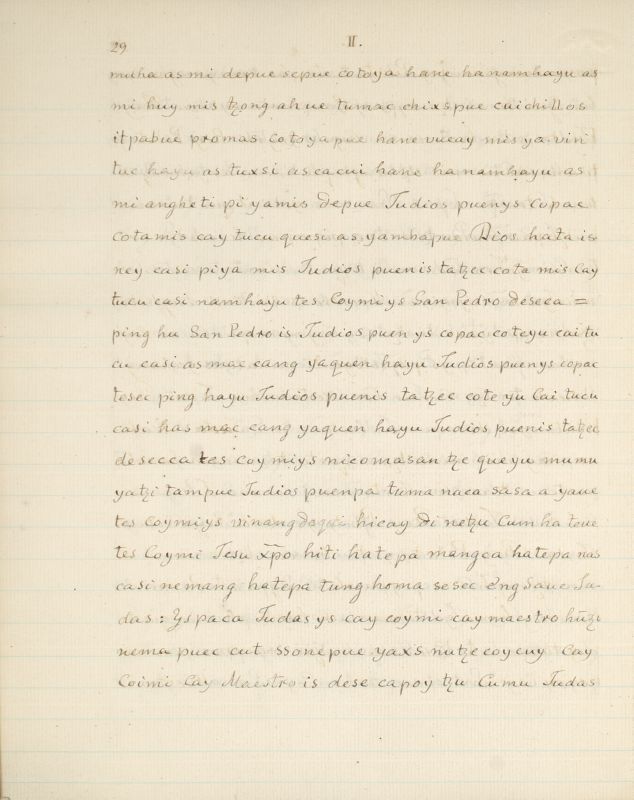 29 II.
muha as mi depue sepue cotoya hane hanamhayu as
mi huy mis tzong ahue tumac chixspue cuichillos
itpabue promas cotoyapue hane vueay mis ya vin
tuc hayu as tuxsi as cacui hane hanamhayu as
mi angheti pi yamis depue Tudios puenys copac
cotamis cay tucu quesi as yambapue Dios hata is
ney casi piya mis Tudios puenis tatzec cota mis Cay
tucu casi namhayu tes Coymiys San Pedro deseca =
ping hu San Pedro is Tudios puenys copac coteyu cai tu
cu casi as mac cang yaquen hayu Tudios puenys copac
tesec ping hayu Tudios puenis tatzec cote yu Cai tucu
casi has mac cang yaquen hayu Tudios puenis tatzec
desecca tes coymiys nicomasan tze queyu mumu
yatzi tampue Tudios puenpa tuma naca sasa a yaue
tes coymiys vinang hicay di netzu Cumha teue
tes Coymi Tesu xp̃o hiti hatepa mangca hatepa nas
casi nemang hatepa tung homa sesec eng saue Ju-
das: Ys paca Tudas ys cay coymi cay maestro hūtzi
nema puec cut ssonepue yaxs nutze coycuy Cay
Coimi Cay Maestro is dese capoy tzu Cumu Tudas